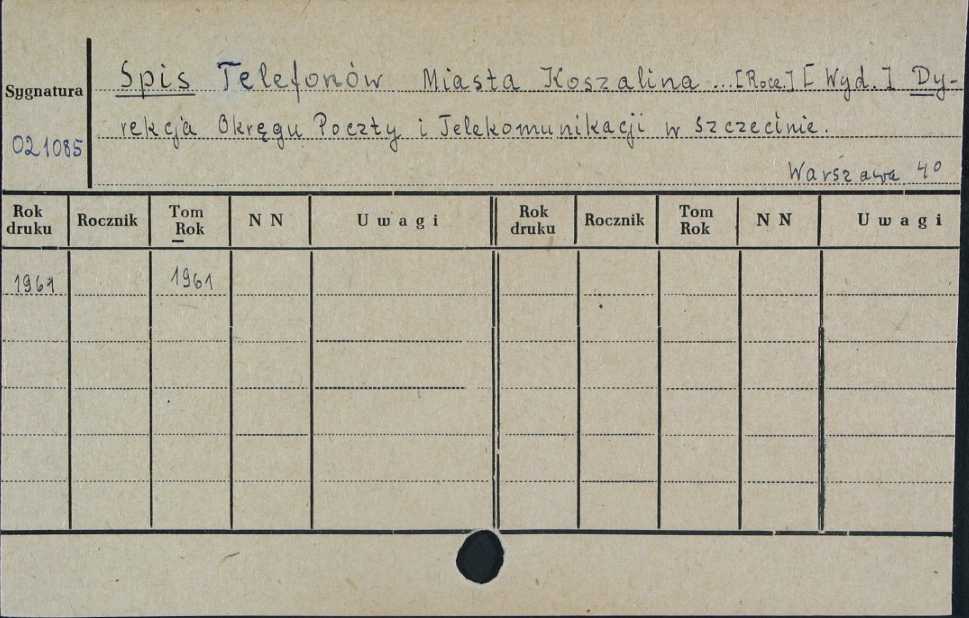 Sygnatura
021085
Spis Telefonów Miasta Koszalina ... [Rocz.] [Wyd.] Dy-
rekcja Okręgu Poczty i Telekomunikacji w Szczecinie.
Warszawa 4°
Rok druku Rocznik Tom Rok N N Uwagi Rok druku Rocznik Tom Rok N N Uwagi
1961 1961